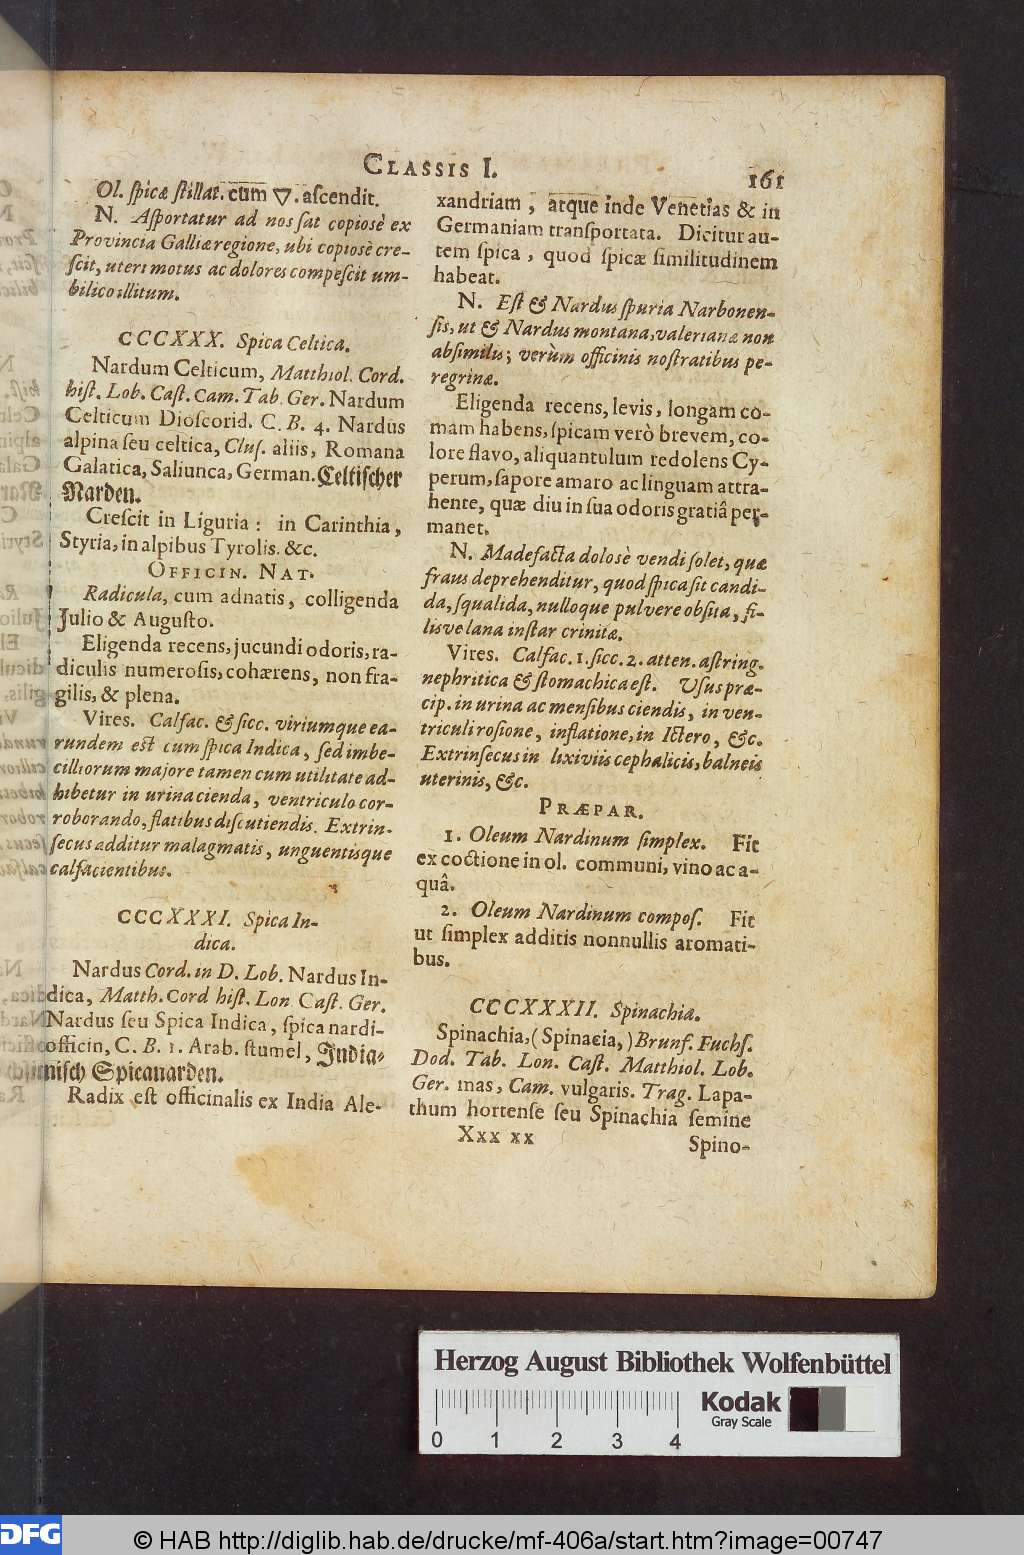 CLASSIS I.
161
Ol. ſpicæ ſtillat. cum ▽. aſcendit.
N. Aſportatur ad nos ſat copiosè ex
Provincia Galliæ regione, ubi copiosè cre-
ſcit, uteri motus ac dolores compeſcit um-
bilico illitum.
CCCXXX. Spica Celtica.
Nardum Celticum, Matthiol. Cord.
hiſt. Lob. Caſt. Cam. Tab. Ger. Nardum
Celticum Dioſcorid. C. B. 4. Nardus
alpina ſeu celtica, Cluſ. aliis, Romana
Galatica, Saliunca, German. Celtiſcher
Narden.
Creſcit in Liguria: in Carinthia,
Styria, in alpibus Tyrolis. &c.
OFFICIN. NAT.
Radicula, cum adnatis, colligenda
Julio & Auguſto.
Eligenda recens, jucundi odoris, ra-
diculis numeroſis, cohærens, non fra-
gilis, & plena.
Vires. Calfac. & ſicc. viriumque ea-
rundem eſt cum ſpica Indica, ſed imbe-
cilliorum majore tamen cum utilitate ad-
hibetur in urina cienda, ventriculo cor-
roborando, flatibus diſcutiendis. Extrin-
ſecus additur malagmatis, unguentisque
calfacientibus.
CCCXXXI. Spica In-
dica.
Nardus Cord. in D. Lob. Nardus In-
dica, Matth. Cord hiſt. Lon Caſt. Ger.
Nardus ſeu Spica Indica, ſpica nardi
officin, C. B. 1. Arab. ſtumel, India-
niſch Spicanarden.
Radix eſt officinalis ex India Ale-
xandriam, atque inde Venetias & in
Germaniam tranſportata. Dicitur au-
tem ſpica, quod ſpicæ ſimilitudinem
habeat.
N. Eſt & Nardus ſpuria Narbonen-
ſis, ut & Nardus montana, valerianæ non
abſimilis; verùm officinis noſtratibus pe-
regrinæ.
Eligenda recens, levis, longam co-
mam habens, ſpicam verò brevem, co-
lore flavo, aliquantulum redolens Cy-
perum, ſapore amaro ac linguam attra-
hente, quæ diu in ſua odoris gratiâ per-
manet.
N. Madefacta dolosè vendi ſolet, quæ
fraus deprehenditur, quod ſpica ſit candi-
da, ſqualida, nulloque pulvere obſita, fi-
lisve lana inſtar crinitæ.
Vires. Calfac. 1. ſicc. 2. atten. aſtring.
nephritica & ſtomachica eſt. Uſus præ-
cip. in urina ac menſibus ciendis, in ven-
triculi roſione, inflatione, in Ictero, &c.
Extrinſecus in lixiviis cephalicis, balneis
uterinis, &c.
PRÆPAR.
1. Oleum Nardinum ſimplex. Fit
ex coctione in ol. communi, vino ac a-
quâ.
2. Oleum Nardinum compoſ. Fit
ut ſimplex additis nonnullis aromati-
bus.
CCCXXXII. Spinachia.
Spinachia, (Spinacia,) Brunf. Fuchſ.
Dod. Tab. Lon. Caſt. Matthiol. Lob.
Ger. mas, Cam. vulgaris. Trag. Lapa-
thum hortenſe ſeu Spinachia ſemine
Xxx xx
Spino-
Herzog August Bibliothek Wolfenbüttel
Kodak
Gray Scale
0 1 2 3 4
DFG
© HAB http://diglib.hab.de/drucke/mf-406a/start.htm?image=00747